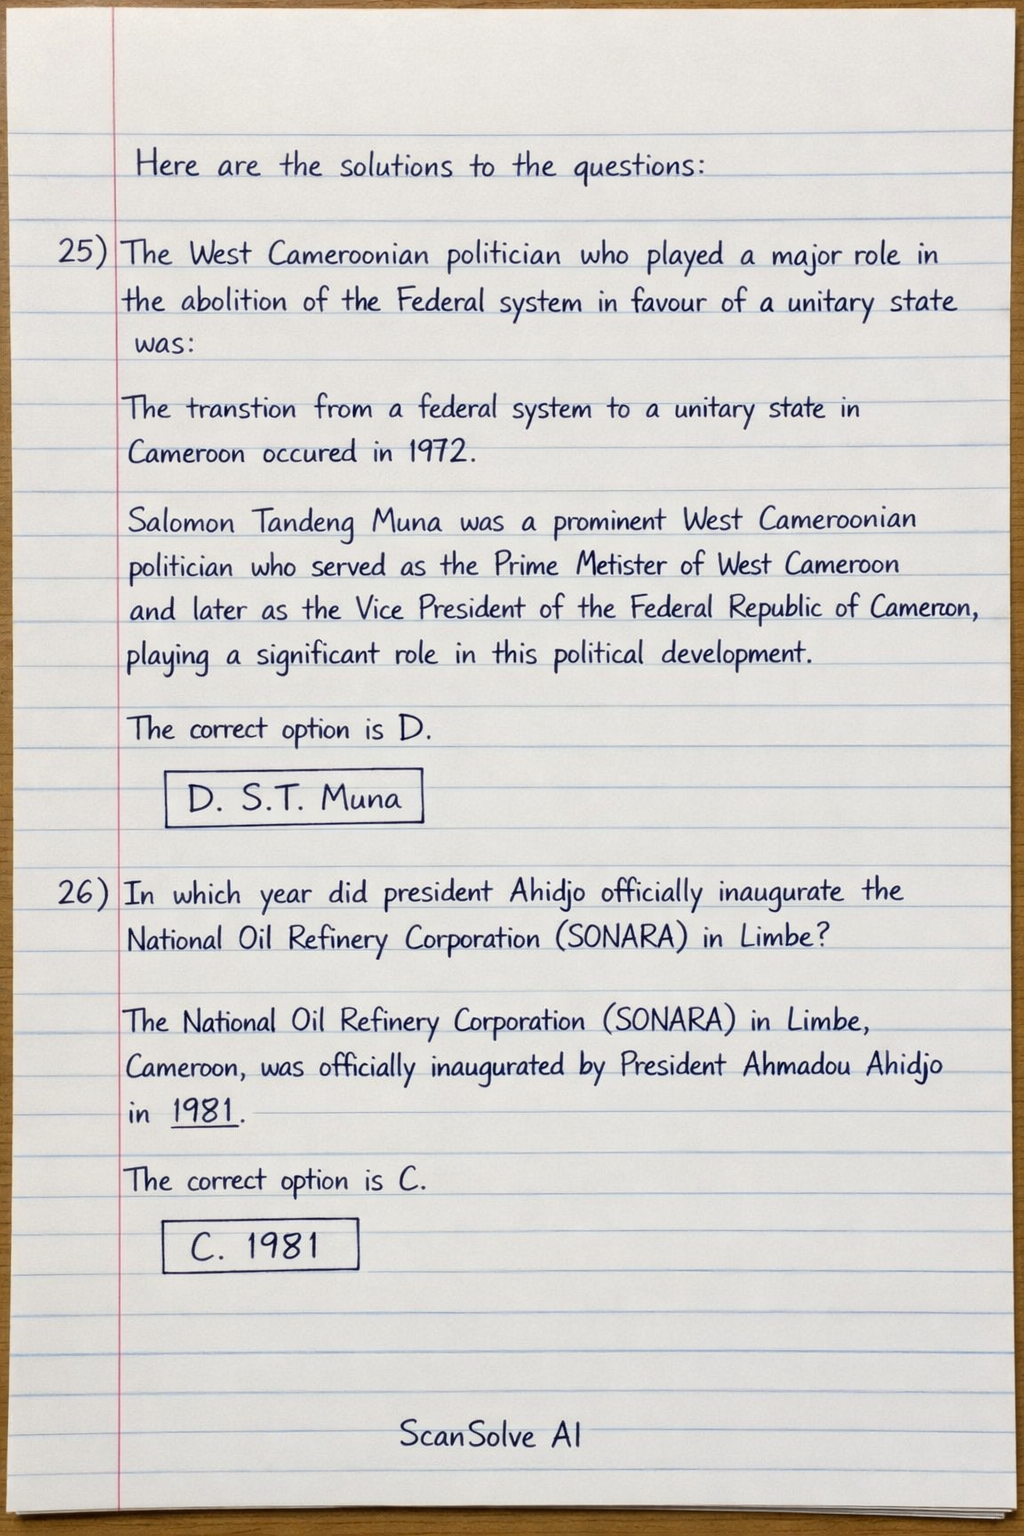 Here are the solutions to the questions:
25) The West Cameroonian politician who played a major role in
the abolition of the Federal system in favour of a unitary state
was:
The transtion from a federal system to a unitary state in
Cameroon occured in 1972.
Salomon Tandeng Muna was a prominent West Cameroonian
politician who served as the Prime Metister of West Cameroon
and later as the Vice President of the Federal Republic of Cameroon,
playing a significant role in this political development.
The correct option is D.
D. S.T. Muna
26) In which year did president Ahidjo officially inaugurate the
National Oil Refinery Corporation (SONARA) in Limbe?
The National Oil Refinery Corporation (SONARA) in Limbe,
Cameroon, was officially inaugurated by President Ahmadou Ahidjo
in 1981.
The correct option is C.
C. 1981
ScanSolve AI